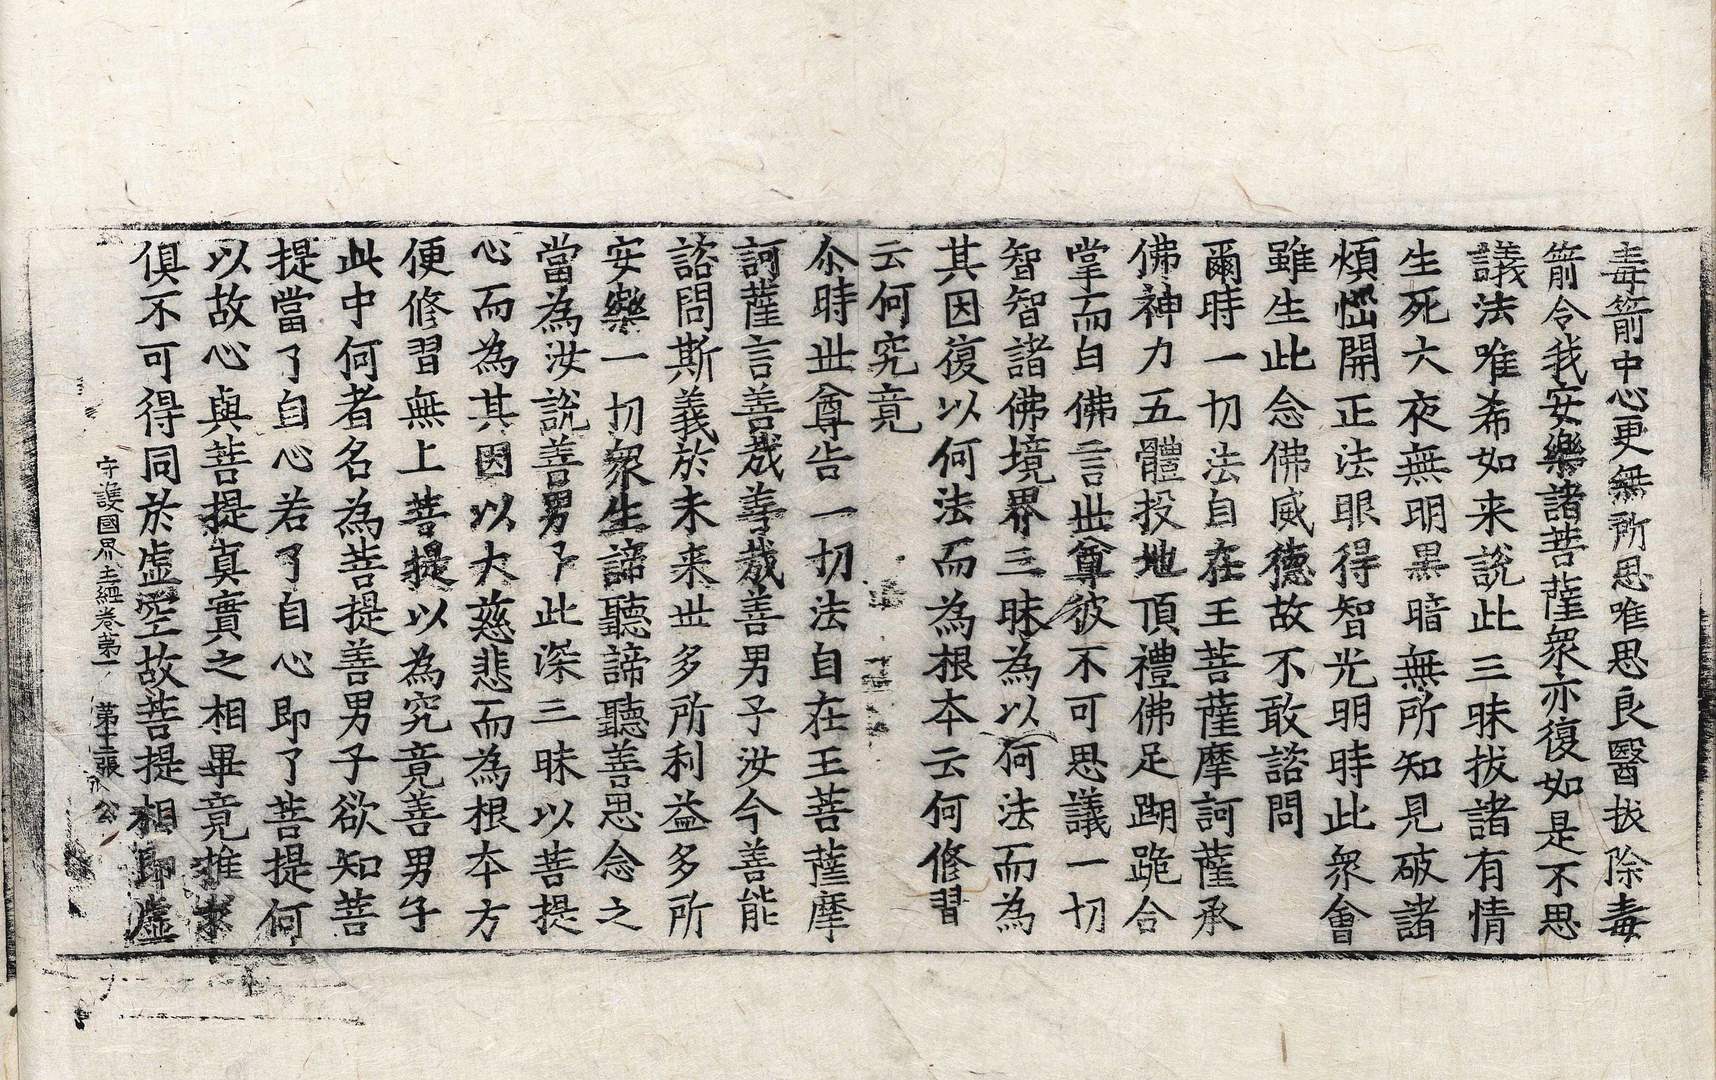 毒箭中心更無所思唯思良醫拔除毒
箭令我安樂諸菩薩衆亦復如是不思
議法唯希如来說此三昧拔諸有情
生死大夜無明黒暗無所知見破諸
煩惱開正法眼得智光明時此衆會
雖生此念佛威德故不敢諮問
爾時一切法自在王菩薩摩訶薩承
佛神力五體投地頂禮佛足蹦跪合
掌而白佛言世尊彼不可思議一切
智智諸佛境界三昧為以何法而為
其因復以何法而為根本云何修習
云何究竟
尒時世尊告一切法自在王菩薩摩
訶薩言善哉善哉善男子汝今善能
諮問斯義於未来世多所利益多所
安樂一切衆生諦聽諦聽善思念之
當為汝說善男子此深三昧以菩提
心而為其因以大慈悲而為根本方
便修習無上菩提以為究竟善男子
此中何者名為菩提善男子欲知菩
提當了自心若了自心即了菩提何
以故心與菩提真實之相畢竟推求
俱不可得同於虛空故菩提相即虛
守護國界主經卷第一 第十三張 公